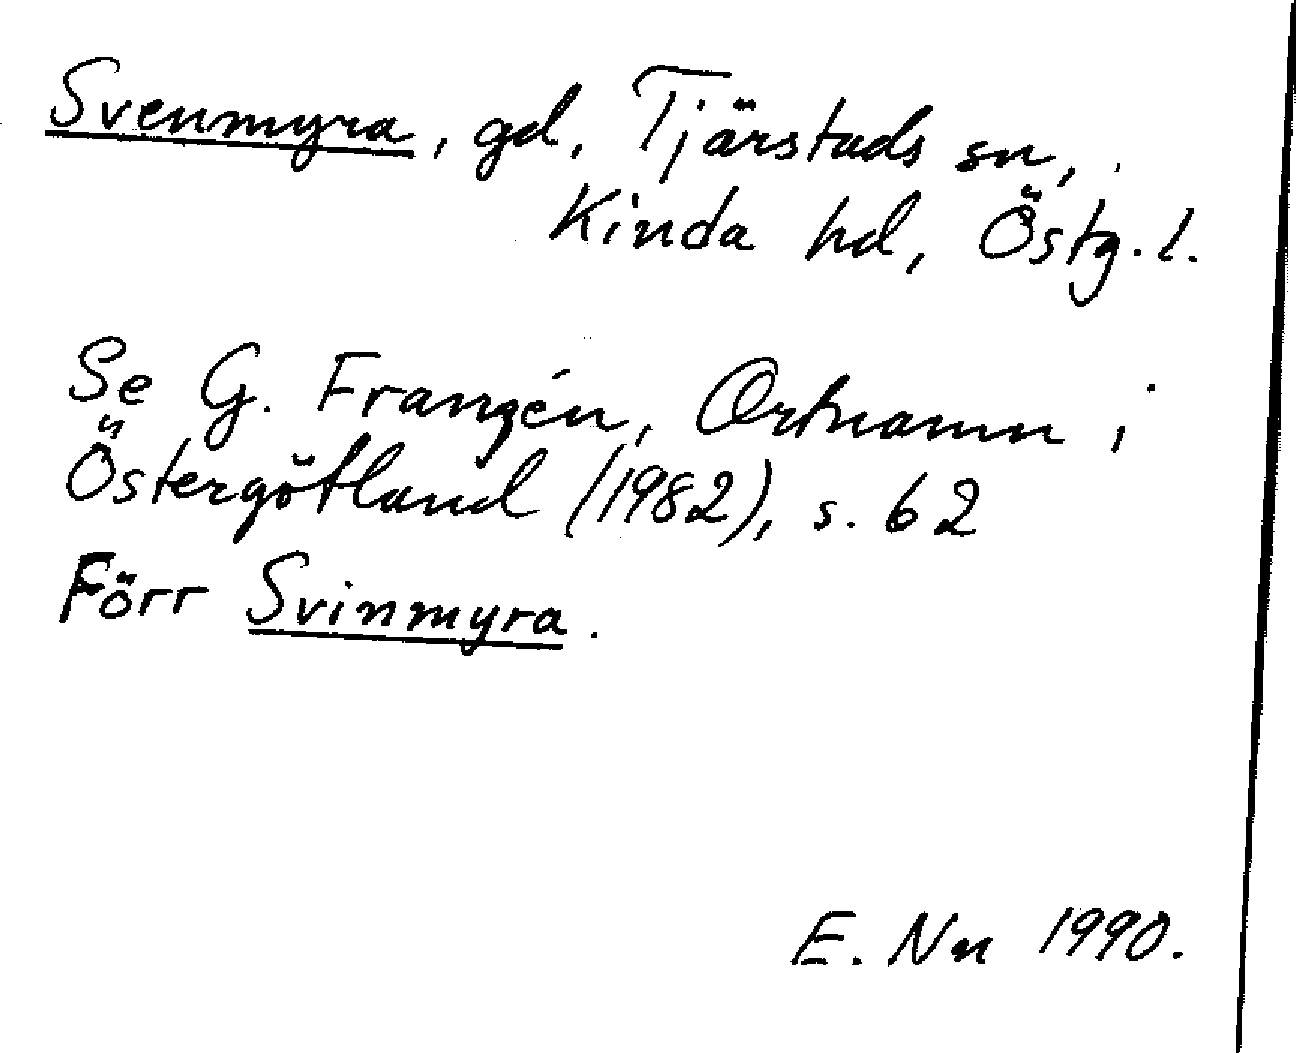 Svenmyra, gd, Tjärstads sn,
Kinda hd, Östg. l.
Se G. Franzén, Ortnamn i
Östergötland (1982), s. 62
Förr Svinmyra.
E. Nn 1990.